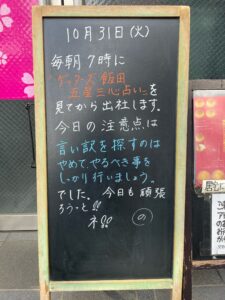 10月31日(火)
毎朝7時に
ゲッターズ飯田
五星三心占いを
見てから出社します。
今日の注意点は
言い訳を探すのは
やめて、やるべき事を
しっかり行いましょう。
でした。今日も頑張
ろうっと!!
ネ!!
の